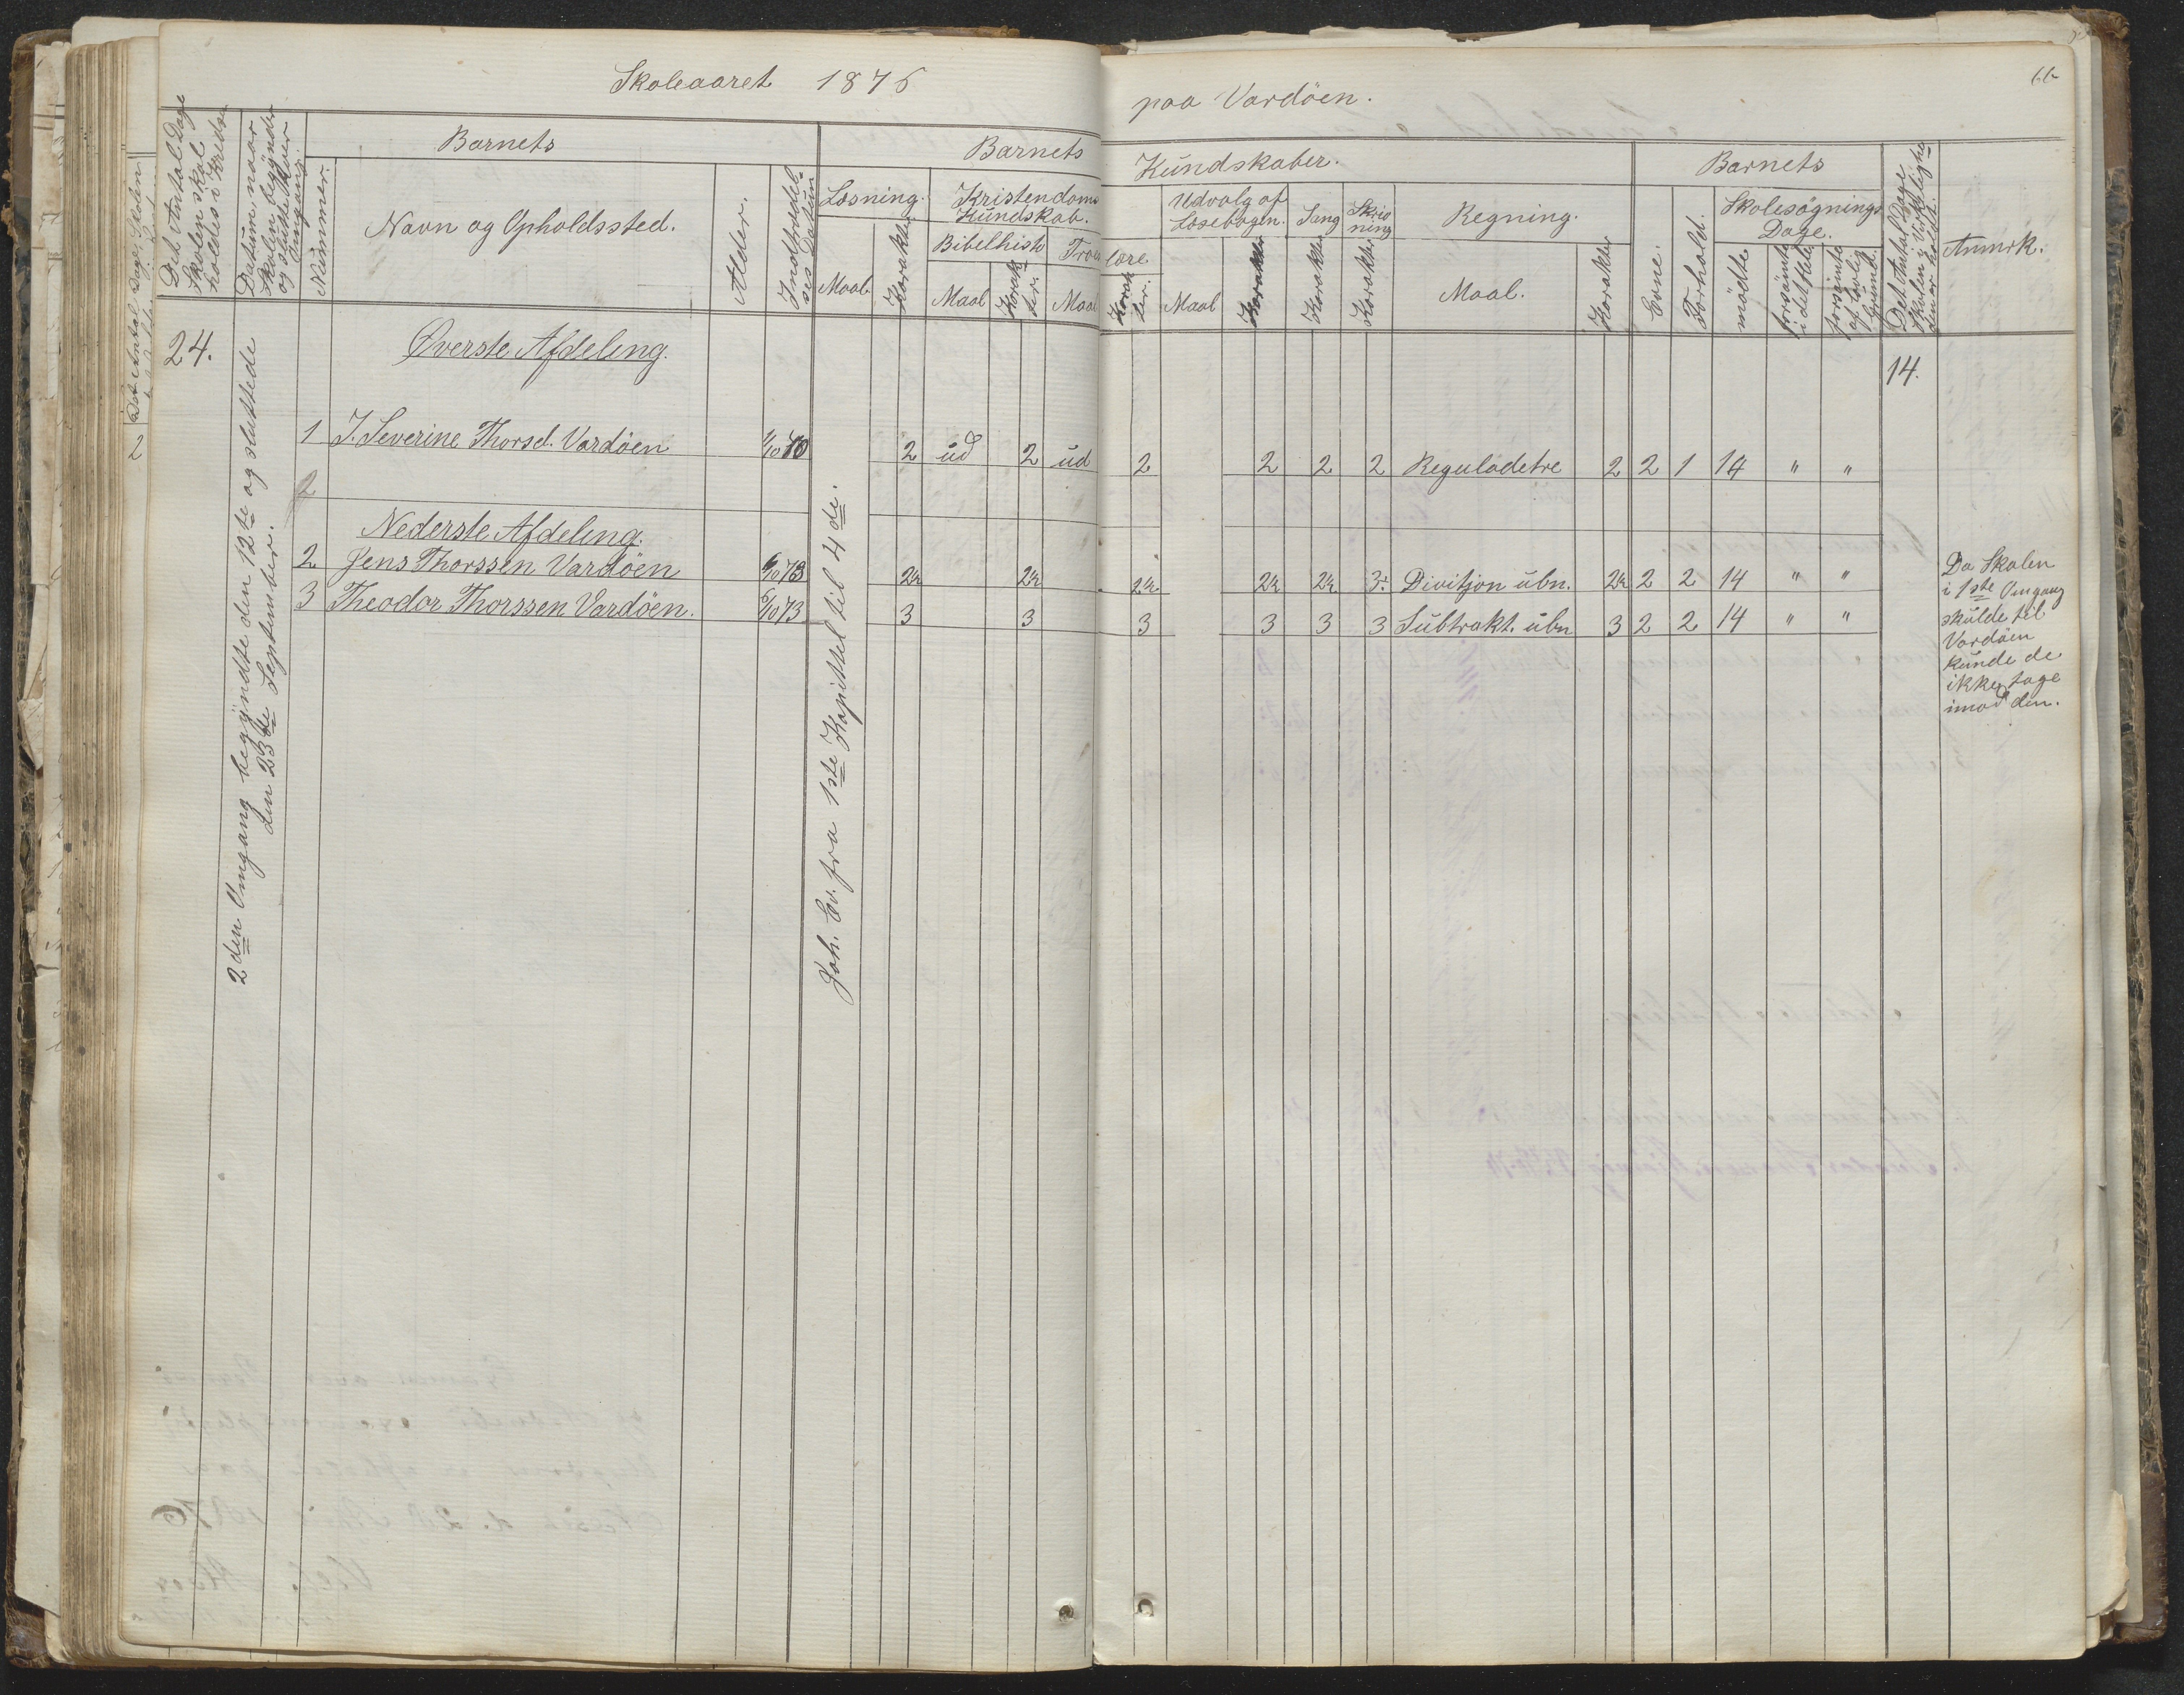 Skoleaaret 1876
paa Vardöen.
66
Det Antal Dage
Skolen skal
holdes i Kredsen
Datum, naar
Skolen begynder
og slutter hver
Omgang.
Nummer.
Barnets
Navn og Opholdssted.
Alder.
Indtrædel-
ses Datum
Barnets
Kundskaber.
Læsning.
Maal.
Karakter
Kristendoms
Kundskab.
Bibelhist.
Maal
Karak-
ter.
Troes
lære
Maal
Karak
ter.
Udvalg af
Læsebogen.
Maal
Karakter
Sang
Karakter
Skriv
ning
Karakter
Regning.
Maal.
Karakter
Barnets
Evne.
Forhold.
Skolesøgnings
Dage.
mödte
forsömte
i det Hele
forsömte
af lovlig
Grund.
Det Antal Dage
Skolen i Virkelighe-
den er holdt.
Anmrk.
24.
Øverste Afdeling.
14.
1 J. Severine Thorsd. Vardöen 1/10 70 2 ud 2 ud 2 2 2 2 Reguladetre 2 2 1 14 " "
2
Nederste Afdeling.
2 Jens Thorssen Vardöen 6/10 73 2½ 2½ 2½ 2½ 2½ 3+ Divisjon ubn. 2½ 2 2 14 " "
3 Theodor Thorssen Vardöen. 6/10 73 3 3 3 3 3 3 Subtrakt. ubn 3 2 2 14 " "
2den Omgang begyndte den 12te og sluttede
den 23de September.
Joh. Ev. fra 1ste Kapittel til 4de.
Da Skolen
i 1ste Omgang
skulde til
Vardöen
kunde de
ikke tage
imod den.
Det Antal Dage Skolen
2